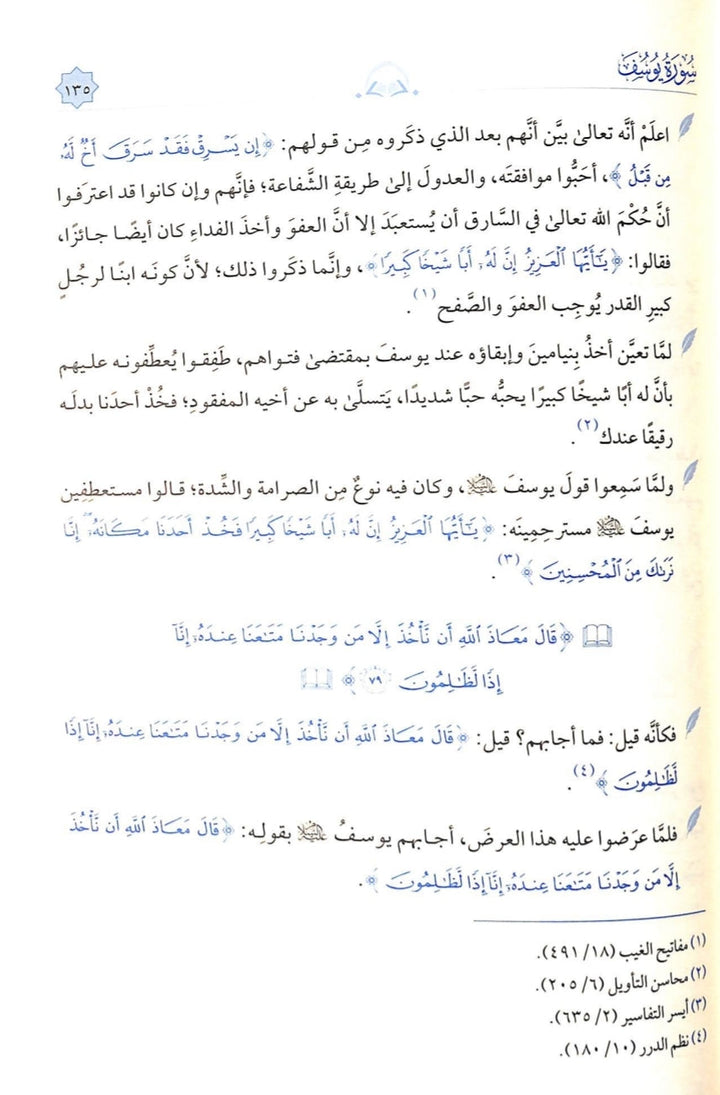 سُورَةُ يُوسُفَ
١٣٥
اعلَمْ أنَّه تعالىٰ بيَّن أنَّهم بعد الذي ذكَروه مِن قولهم: ﴿إِن يَسۡرِقۡ فَقَدۡ سَرَقَ أَخٞ لَّهُۥ
مِن قَبۡلُ﴾، أحَبُّوا موافقتَه، والعدولَ إلىٰ طريقةِ الشَّفاعة؛ فإنَّهم وإن كانوا قد اعترَفوا
أنَّ حُكْمَ الله تعالىٰ في السَّارق أن يُستعبَدَ إلا أنَّ العفوَ وأخذَ الفداءِ كان أيضًا جائزًا،
فقالوا: ﴿يَٰٓأَيُّهَا ٱلۡعَزِيزُ إِنَّ لَهُۥٓ أَبٗا شَيۡخٗا كَبِيرٗا﴾، وإنَّما ذكَروا ذلك؛ لأنَّ كونَه ابنًا لرجُلٍ
كبيرِ القدر يُوجِب العفوَ والصَّفح(١).
لمَّا تعيَّن أخذُ بِنيامينَ وإبقاؤه عند يوسفَ بمقتضىٰ فتواهم، طَفِقوا يُعطِّفونه عليهم
بأنَّ له أبًا شيخًا كبيرًا يحبُّه حبًّا شديدًا، يَتسلَّىٰ به عن أخيه المفقودِ؛ فخُذْ أحدَنا بدلَه
رقيقًا عندك(٢).
ولمَّا سَمِعوا قولَ يوسفَ عليه السلام، وكان فيه نوعٌ مِن الصرامة والشِّدة؛ قالوا مستعطِفين
يوسفَ عليه السلام مسترحِمِينَه: ﴿يَٰٓأَيُّهَا ٱلۡعَزِيزُ إِنَّ لَهُۥٓ أَبٗا شَيۡخٗا كَبِيرٗا فَخُذۡ أَحَدَنَا مَكَانَهُۥٓۖ إِنَّا
نَرَىٰكَ مِنَ ٱلۡمُحۡسِنِينَ﴾(٣).
﴿قَالَ مَعَاذَ ٱللَّهِ أَن نَّأۡخُذَ إِلَّا مَن وَجَدۡنَا مَتَٰعَنَا عِندَهُۥٓ إِنَّآ
إِذٗا لَّظَٰلِمُونَ ٧٩﴾
فكأنَّه قيل: فما أجابهم؟ قيل: ﴿قَالَ مَعَاذَ ٱللَّهِ أَن نَّأۡخُذَ إِلَّا مَن وَجَدۡنَا مَتَٰعَنَا عِندَهُۥٓ إِنَّآ إِذٗا
لَّظَٰلِمُونَ﴾(٤).
فلمَّا عرَضوا عليه هذا العرضَ، أجابهم يوسفُ عليه السلام بقولِه: ﴿قَالَ مَعَاذَ ٱللَّهِ أَن نَّأۡخُذَ
إِلَّا مَن وَجَدۡنَا مَتَٰعَنَا عِندَهُۥٓ إِنَّآ إِذٗا لَّظَٰلِمُونَ﴾.
(١) مفاتيح الغيب (١٨/ ٤٩١).
(٢) محاسن التأويل (٦/ ٢٠٥).
(٣) أيسر التفاسير (٢/ ٦٣٥).
(٤) نظم الدرر (١٠/ ١٨٠).